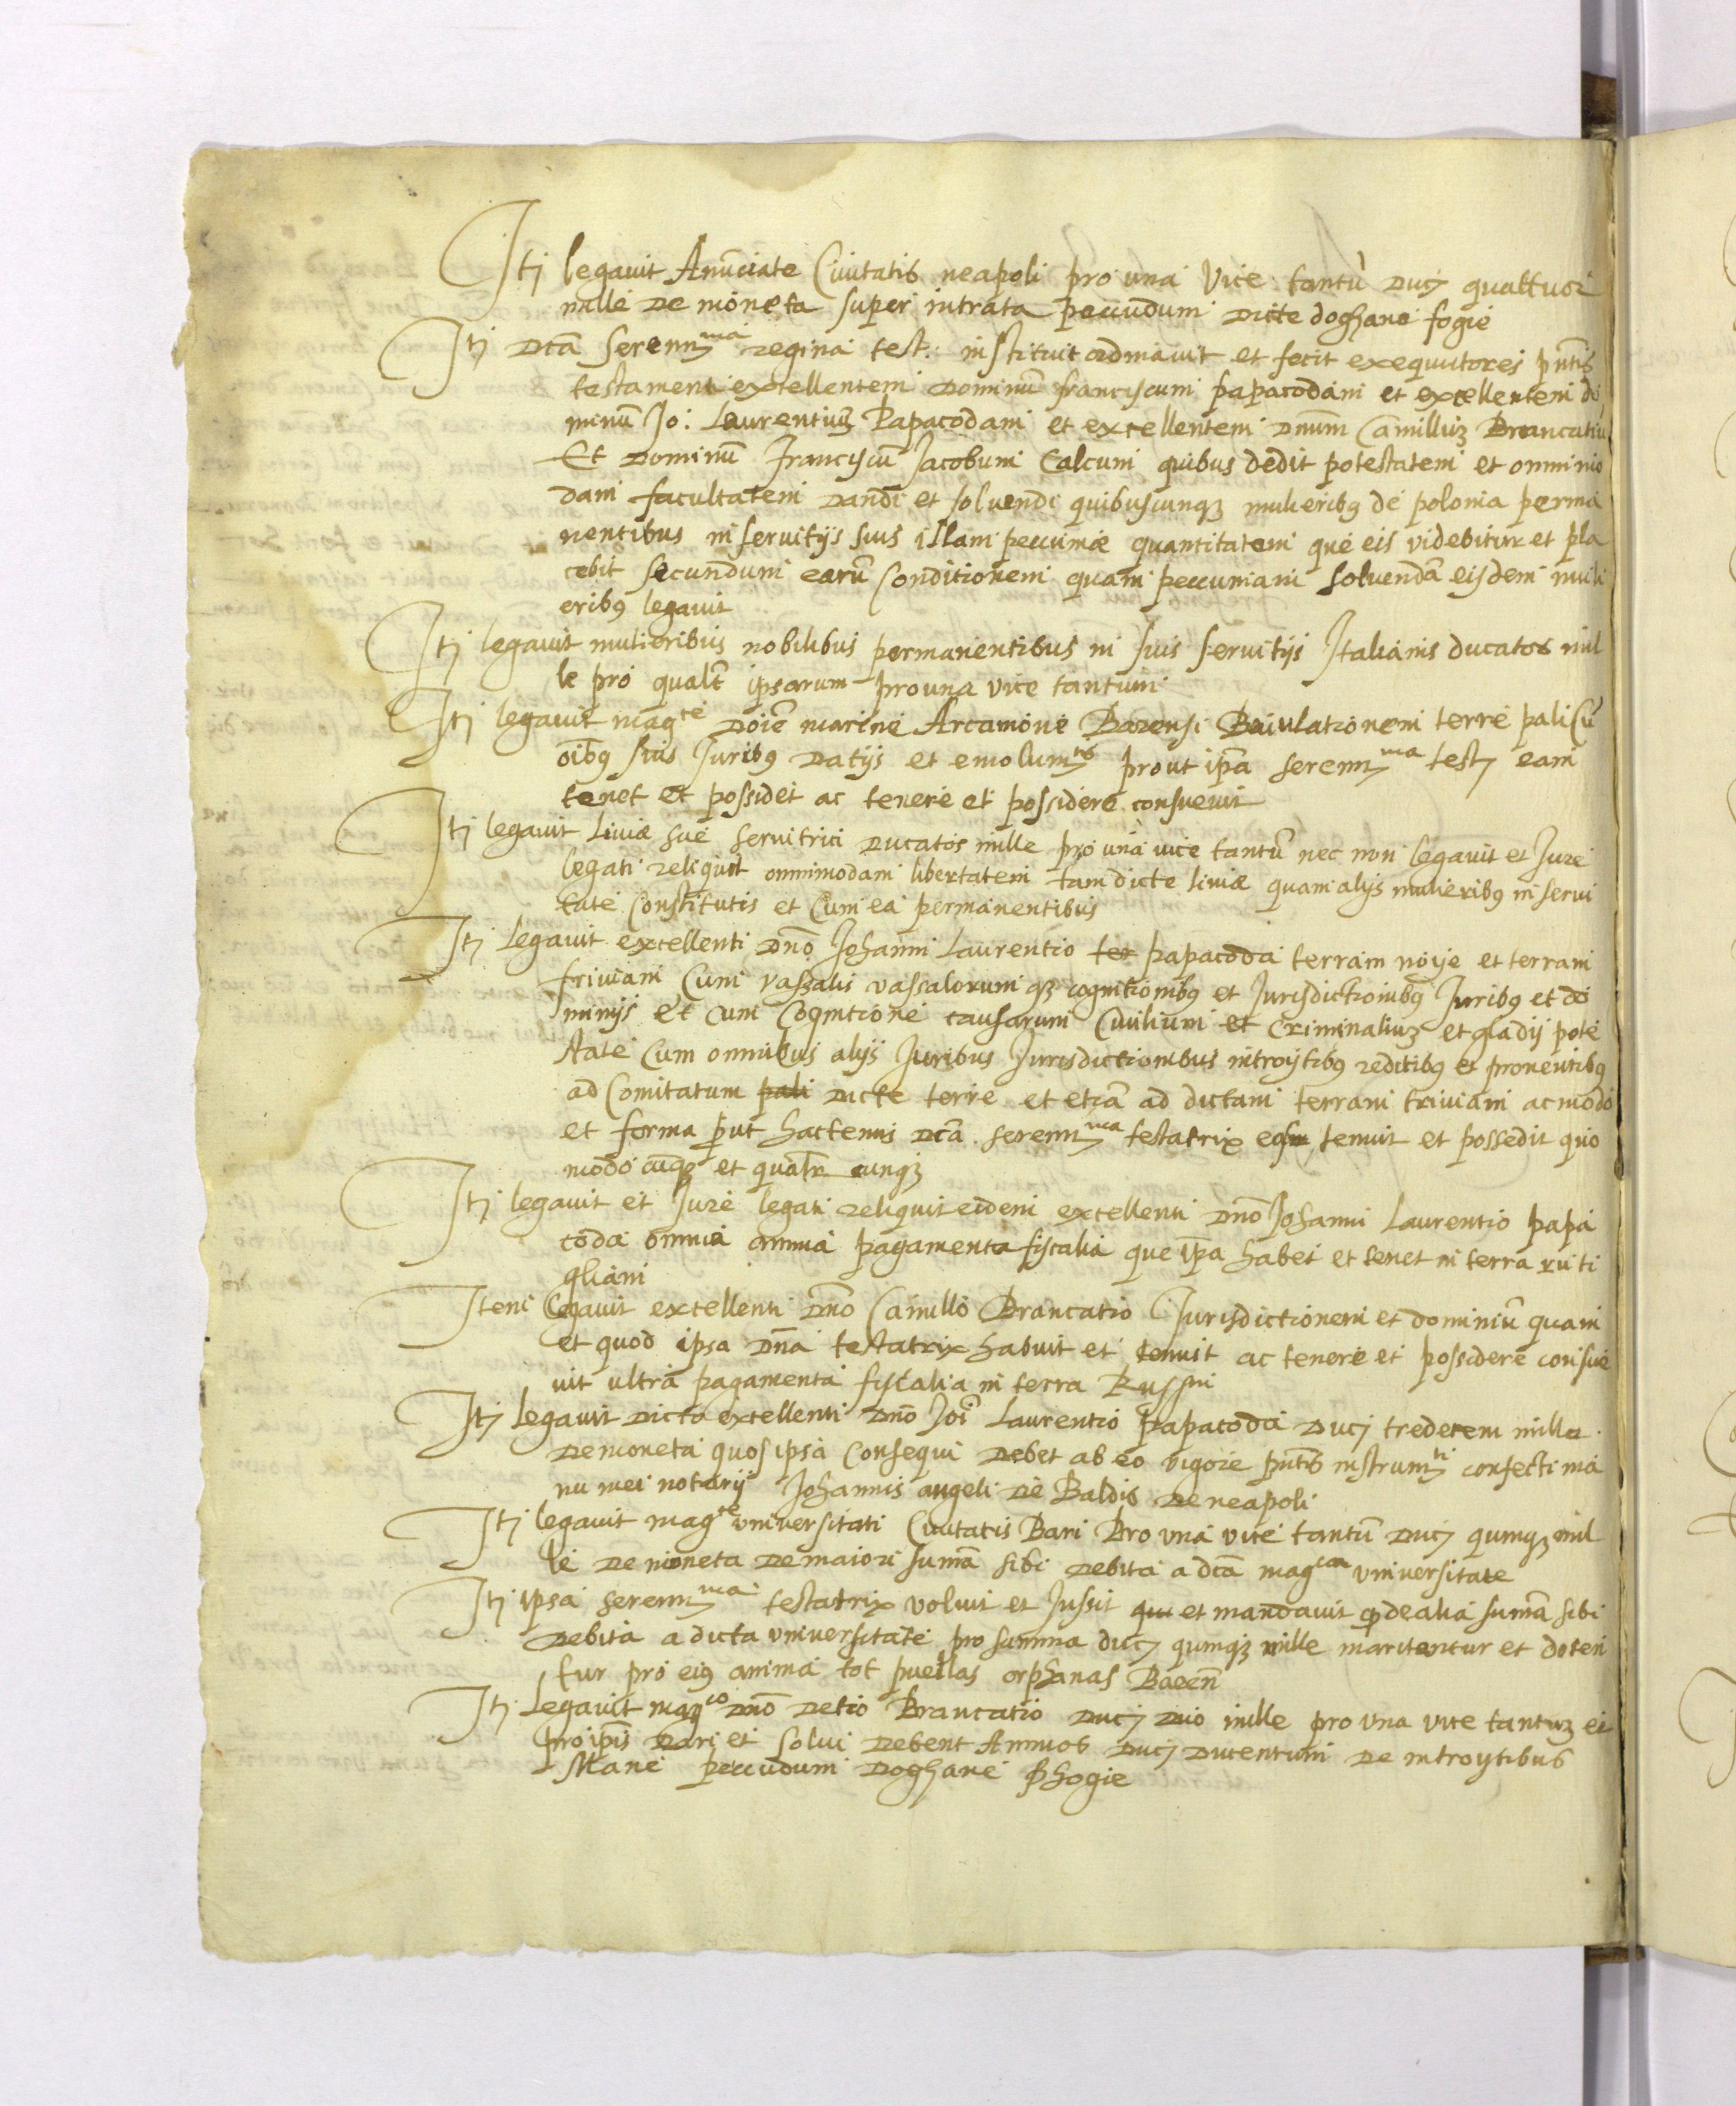 Itj legauit Anūciate Ciuitatis neapoli pro una Vice tantū Ducj quattuor
mille De moneta super intrata peccudum Dicte doghane fogie
Itj Dcā Serenmma regina test. instituit ordinauit et fecit exequutores pn̄tis
testamenti excellentem Dominū franciscum papacodam et excellentem do
minū Jo: Laurentiuȝ Papacodam et excellentem Dnūm Camilluȝ Brancatiū
Et Dominū Franciscū Jacobum Calcum quibus dedit potestatem et omnimo
dam facultatem Dandi et soluendi quibuscunqȝ mulieribꝫ de polonia perma
nentibus in seruitijs suis illam peccuniæ quantitatem que eis videbitur et pla
cebit secundum earū Conditionem quam peccuniam soluendā eisdem muli
eribꝫ legauit
Itj legauit mulieribus nobilibus permanentibus in suis seruitijs Italianis ducatos mil
le pro qualt̄ ipsarum pro una vice tantum
Itj legauit magce Doīe marine Arcamone Barensi Baiulationem terre pali Cū
oībꝫ suis Juribꝫ Datijs et emolumtis prout ip̄a serenmma testj eam
tenet et possidet ac tenere et possidere consueuit
Itj legauit Liuiæ sue seruitrici Ducatos mille pro una uice tantū nec non legauit et Jure
legati reliquit omnimodam libertatem tam dicte Liuiæ quam alijs mulieribꝫ in serui
tute Constitutis et Cum ea permanentibus
Itj Legauit excellenti Dnō Johanni Laurentio ter papacoda terram noije et terram
triuiani Cum vassalis vassalorum qȝ cognitionibꝫ et Jurisdictionibꝫ Juribꝫ et do
minijs et cum Cognitione causarum Ciuilium et Criminaliuȝ et gladij pote
state Cum omnibus alijs Juribus Jurisdictionibus introytibꝫ reditibꝫ et prouentibꝫ
ad Comitatum pali Dicte terre et etiā ad dictam terram triuiani ac modo
et forma put hactenus Dcā serenmma testatrix eas tenuit et possedit quo
modo cūqȝ et qualtr cunqȝ
Itj legauit et Jure legati reliquit eidem excellenti Dnō Johanni Laurentio papa
coda omnia annua pagamenta fiscalia que ip̄a habet et tenet in terra ruti
gliani
Item Legauit excellenti Dnō Camillo Brancatio Jurisdictionem et dominiū quam
et quod ipsa Dnā testatrix habuit et tenuit ac tenere et possidere consue
uit ultra pagamenta fiscalia in terra
Itj Legauit Dicto excellenti Dnō Joī Laurentio papacoda Ducj tredecem mille
De moneta quos ipsa Consequi Debet ab eo vigore pn̄tis instrumti confecti ma
nu mei notarij Johannis angeli De Baldis De neapoli
Itj legauit magce vniuersitati Ciuitatis Bari Pro vna vice tantū Ducj quinqȝ mil
le De moneta De maiori sumā sibi Debita a dcā magcaa vniuersitate
Itj ipsa serenmma testatrix voluit et Jussit qui et mandauit qd de alia sumā sibi
Debita a dicta vniuersitate pro summa ducj quinqȝ mille maritentur et doten
tur pro eiꝫ anima tot puellas orphanas Baren̄
Itj Legauit magco Dnō Detio Brancatio Ducj Duo mille pro vna vice tantuȝ et
pro ip̄is Dari et solui Debent Annuos Ducj Ducentum De introytibus
Mane peccudum Doghane Phogie